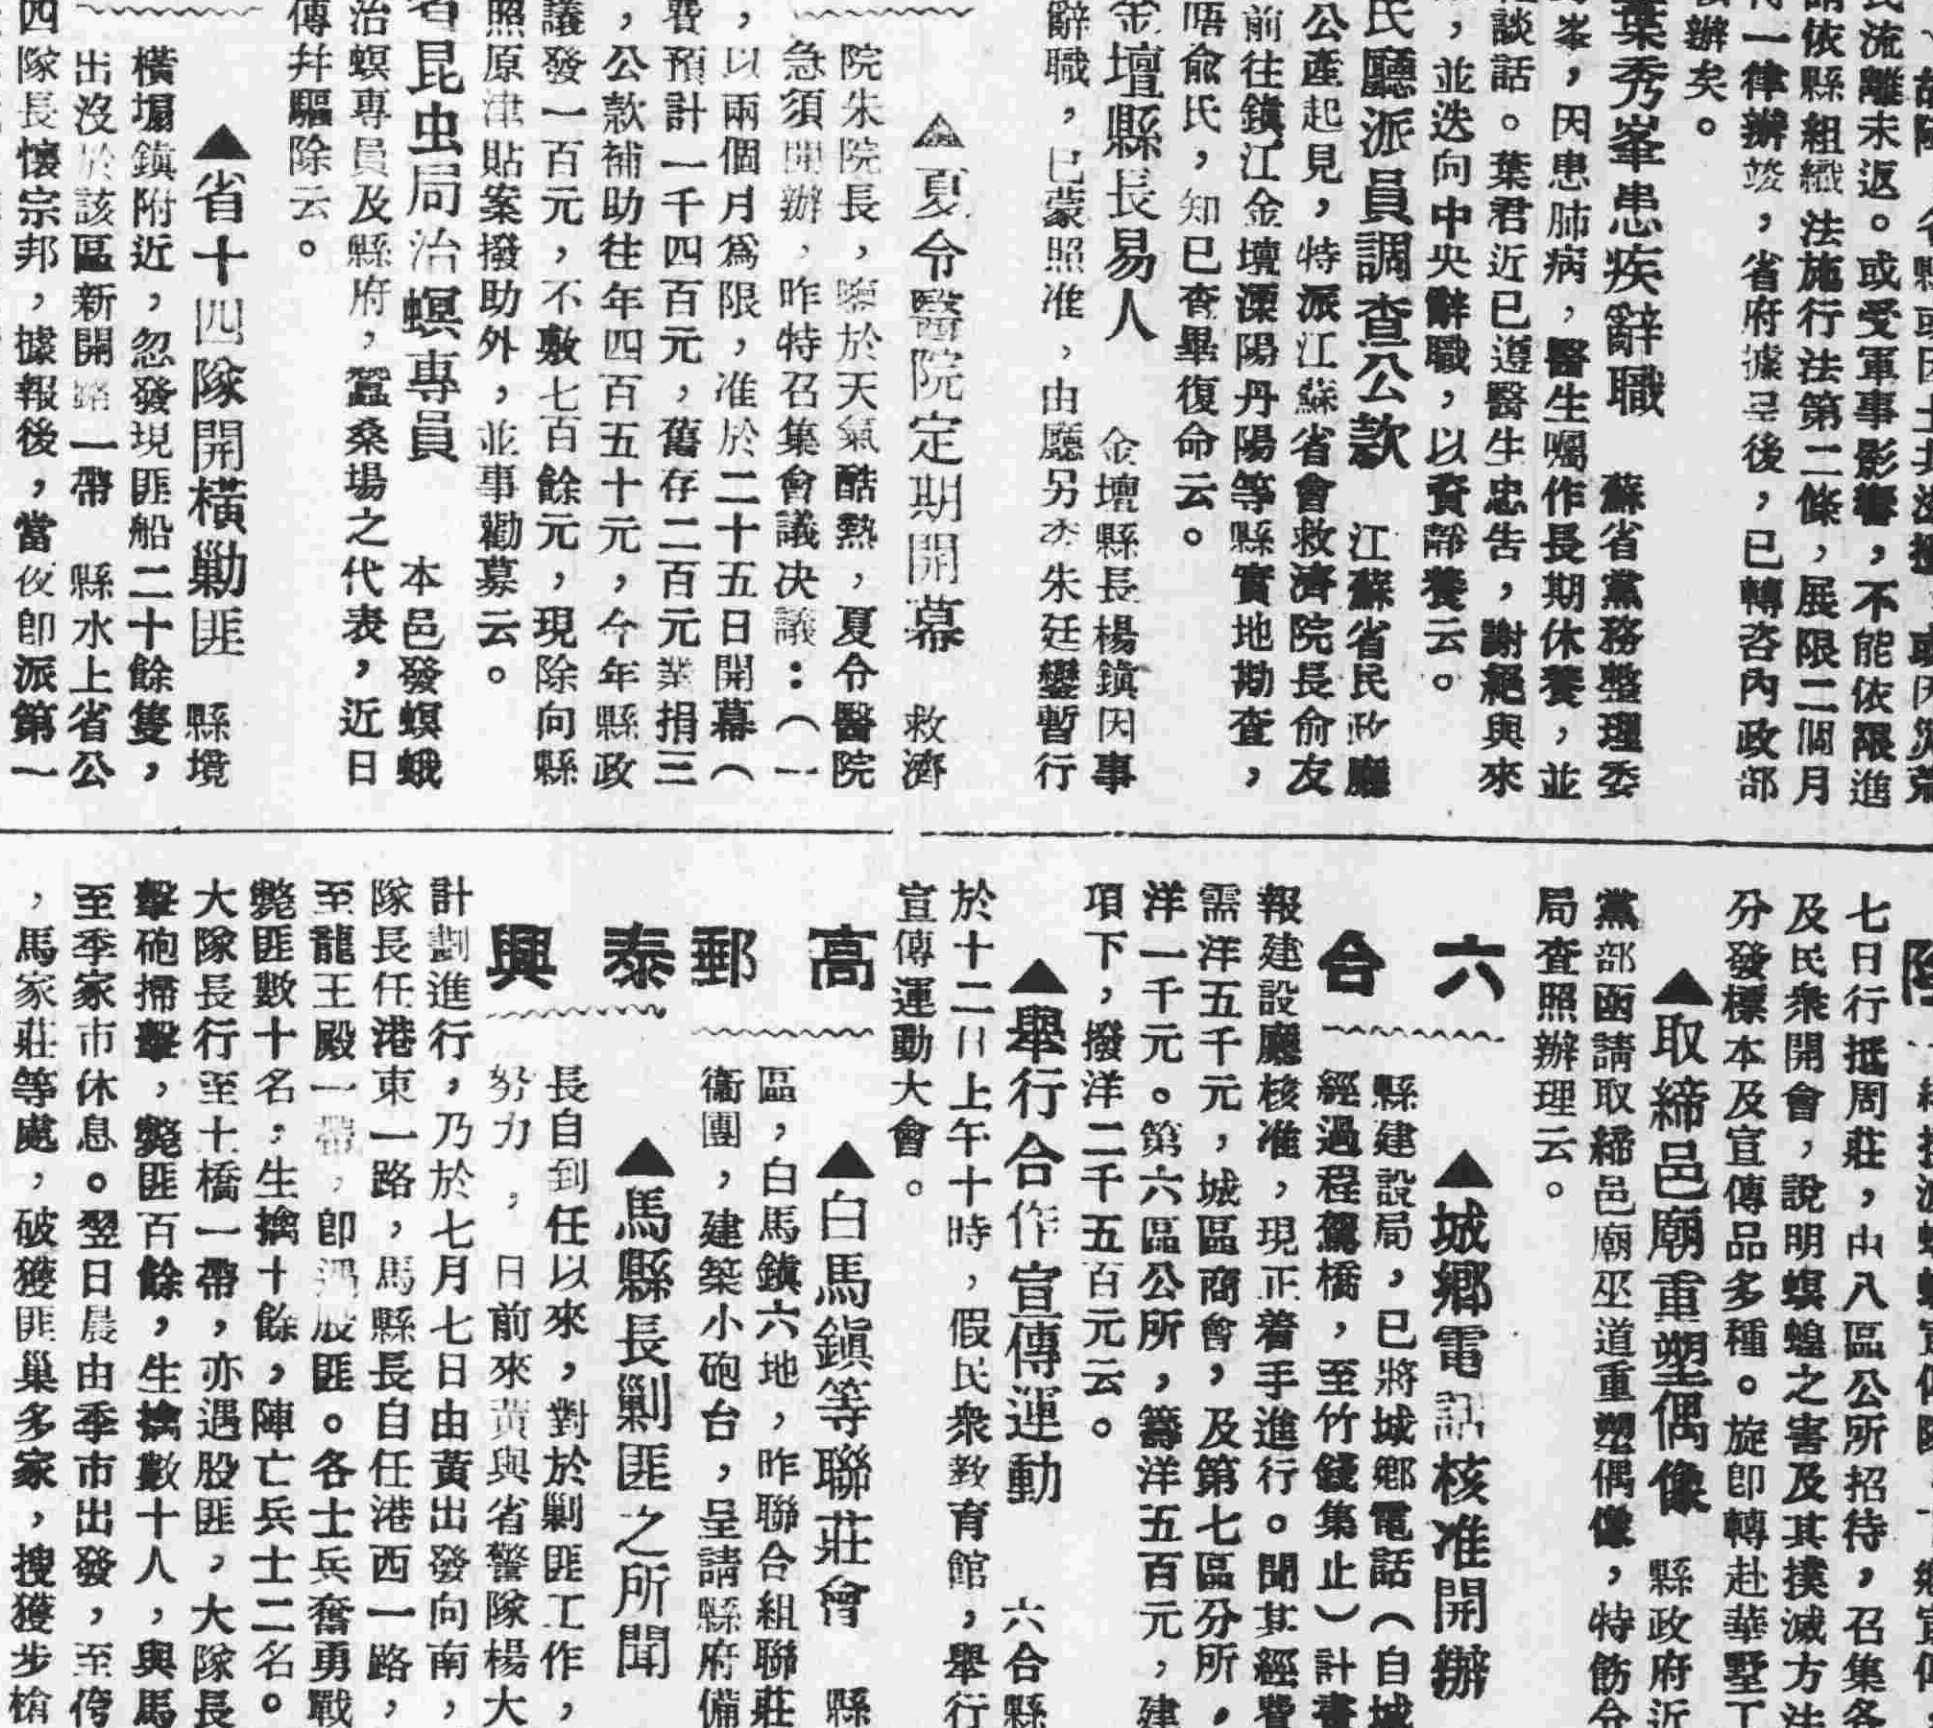 省縣或因土共滋擾，或因災荒
民流離未返。或受軍事影響，不能依限進
請依縣組織法施行法第二條，展限二個月
一律辦竣，省府據呈後，已轉咨內政部
辦矣。
葉秀峯患疾辭職　蘇省黨務整理委
峯，因患肺病，醫生囑作長期休養，並
談話。葉君近已遵醫生忠告，謝絕與來
，並迭向中央辭職，以資靜養云。
民廳派員調查公款　江蘇省民政廳
公產起見，特派江蘇省會救濟院長俞友
前往鎮江金壇溧陽丹陽等縣實地勘查，
晤俞氏，知已查畢復命云。
金壇縣長易人　金壇縣長楊鎮因事
辭職，已蒙照准，由廳另委朱廷鑾暫行
▲夏令醫院定期開幕　救濟
院朱院長，鑒於天氣酷熱，夏令醫院
急須開辦，昨特召集會議决議：（一
，以兩個月爲限，准於二十五日開幕（
費預計一千四百元，舊存二百元業捐三
，公款補助往年四百五十元，今年縣政
議發一百元，不敷七百餘元，現除向縣
照原津貼案撥助外，並事勸募云。
省昆虫局治螟專員　本邑發螟蛾
治螟專員及縣府，蠶桑場之代表，近日
傳幷驅除云。
▲省十四隊開橫勦匪　縣境
橫塌鎮附近，忽發現匪船二十餘隻，
出沒於該區新開路一帶　縣水上省公
四隊長懷宗邦，據報後，當夜卽派第一
七日行抵周莊，由八區公所招待，召集各
及民衆開會，說明螟蝗之害及其撲滅方法
分發標本及宣傳品多種。旋卽轉赴華墅工
▲取締邑廟重塑偶像　縣政府近
黨部函請取締邑廟巫道重塑偶像，特飭公
局查照辦理云。
六合
▲城鄉電話核准開辦
縣建設局，已將城鄉電話（自城
經過程駕橋，至竹鎮集止）計畫
報建設廳核准，現正着手進行。聞其經費
需洋五千元，城區商會，及第七區分所，
洋一千元。第六區公所，籌洋五百元，建
項下，撥洋二千五百元云。
▲舉行合作宣傳運動　六合縣
於十二日上午十時，假民衆教育館，舉行
宣傳運動大會。
高郵
▲白馬鎮等聯莊會　縣
區，白馬鎮六地，昨聯合組聯莊
衞團，建築小砲台，呈請縣府備
泰興
▲馬縣長剿匪之所聞
長自到任以來，對於剿匪工作，
努力，日前來黃與省警隊楊大
計劃進行，乃於七月七日由黃出發向南，
隊長任港東一路，馬縣長自任港西一路，
至龍王殿一帶，卽遇股匪。各士兵奮勇戰
斃匪數十名，生擒十餘，陣亡兵士二名。
大隊長行至土橋一帶，亦遇股匪，大隊長
擊砲掃擊，斃匪百餘，生擒數十人，與馬
至季家市休息。翌日晨由季市出發，至侉
，馬家莊等處，破獲匪巢多家，搜獲步槍